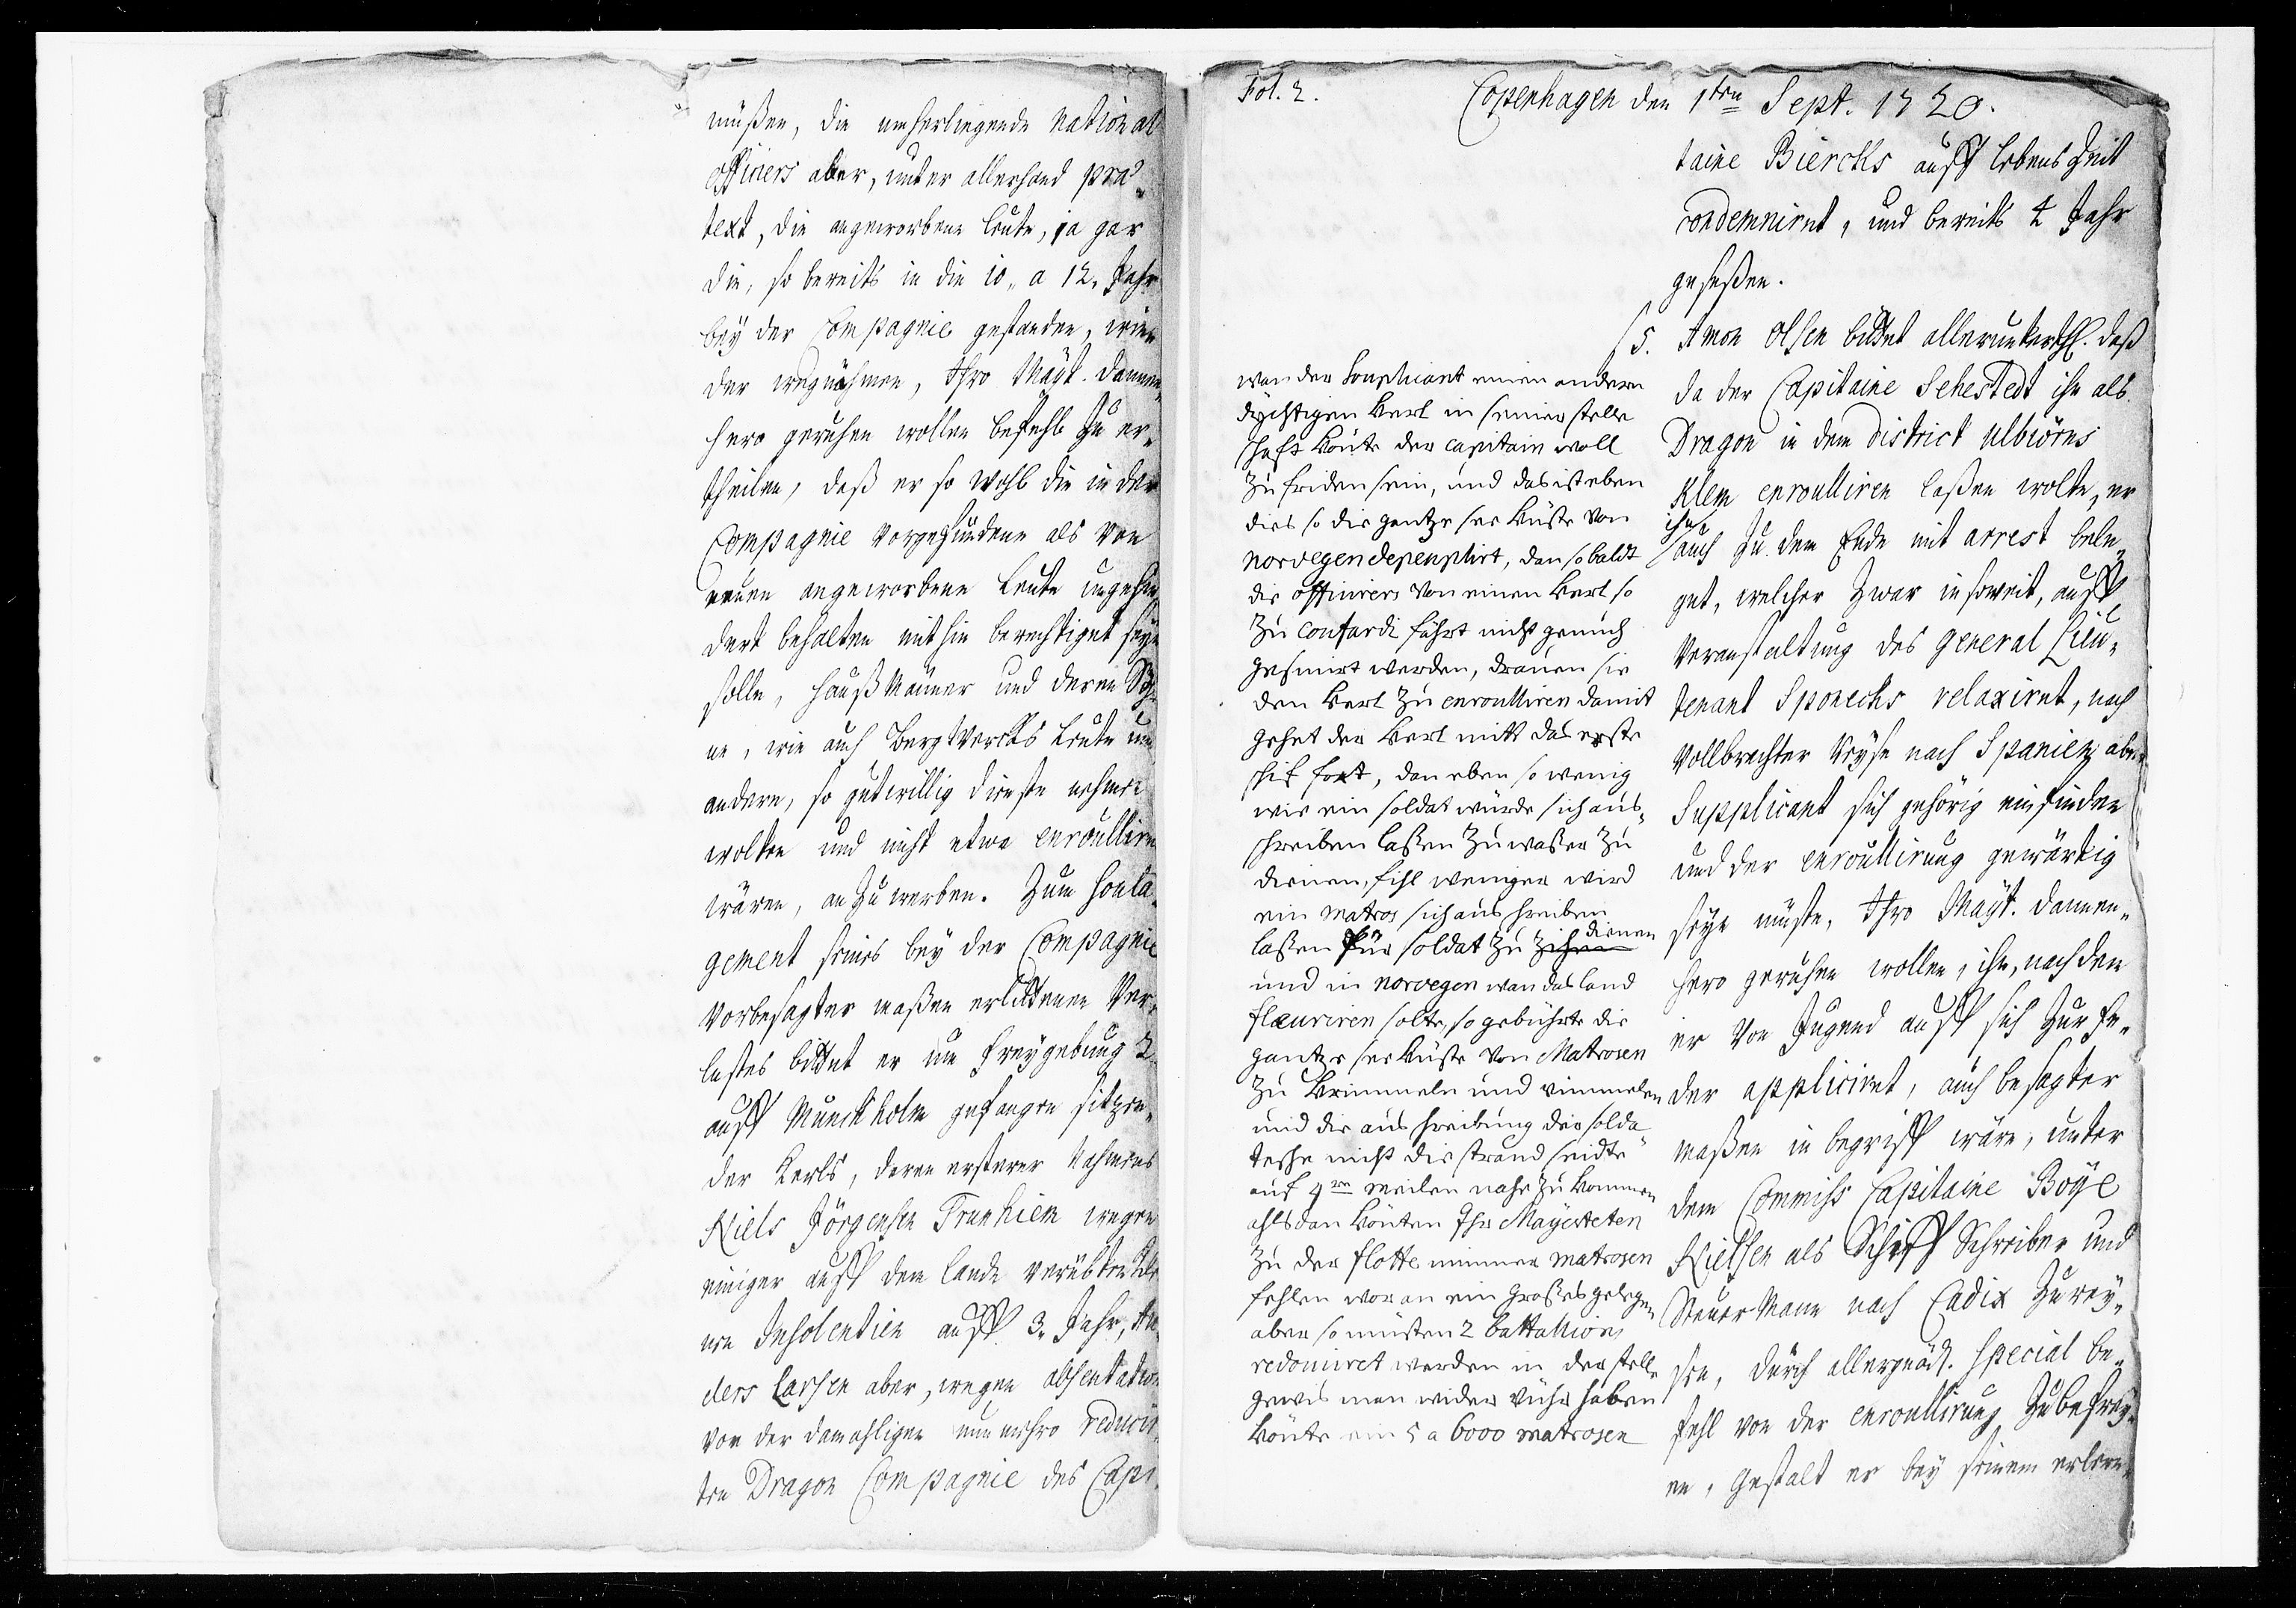 müßen, die umherliegende National
officiers aber, unter allerhand præ¬
text, die angeworbene leute, ja gar
die, so bereits in die 10. a 12. Jahr
bey der Compagnie gestanden, wie¬
der wegnähmen, Ihro Mayt. dannen¬
hero geruhen wollen befehl zu er¬
theilen, daß er so wohl die in der
Compagnie vorgefundene als von
neuen angeworbene Leute ungehin¬
dert behalten mithin berechtiget seyn
solle, Hauß Männer und deren Söh¬
ne, wie auch Bergwercks Leute und
andere, so gutwillig dienste nehmen
wolten und nicht etwa enroullirt
wären, anzuwerben. Zum soula¬
gement seines bey der Compagnie
vorbesagter maßen erlittenen Ver¬
lustes bittet er um freygebung 2
auff Munckholm gefangen sitzen¬
der Kerls, deren ersterer Nahmens
Niels Jörgensen Trunhiem wegen
einiger auff dem lande verübten
nen Insolentien auff 3. Jahr, An¬
ders Larsen aber, wegen absentation
von der damahligen nunmehro reducir¬
ten Dragon Compagnie des Capi¬
Fol. 2.
Copenhagen den 1ten Sept. 1720.
taine Biercks auff lebens Zeit
condemniret, und bereits 4 Jahr
geseßen.
5. Amon Olsen bittet allerunterthl. daß
da der Capitaine Sehestedt ihn als
Dragon in dem district Ulbiörns
Klem enroulliren laßen wolte, er
ihn
auch zu dem Ende mit arrest bele¬
get, welcher zwar in soweit, auff
Veranstaltung des General Lieu¬
tenant Sponecks relaxiret, nach
vollbrachter Reyse nach Spanien aber
Supplicant sich gehörig einfinden
und der enroullirung gewärtig
seyn müste, Ihro Mayt. dannen¬
hero geruhen wollen, ihn, nachdem
er von Jugend auff sich zur Fe¬
der appliciret, auch besagter
maßen in begriff wäre, unter
dem Commiss Capitaine Boye
Nielsen als Schiff Schreiber und
Steuer Mann nach Cadix zu rey¬
sen, durch allergnädt. special be¬
fehl von der enroullirung zu befrey¬
en, gestalt er bey seinem erlern¬
wan der Souplicant einen andern
dychtigen Kerl in seiner stelle
schaft könte der capitain woll
zu friden sein, und das ist eben
dies so die gantze see küste von
norvegen depeuplirt, dan so baldt
die officirers von einen Kerl so
zu confardi fährt nicht genuch
gesmirt werden, drauen sie
den Kerl zu enroulliren damit
gehet der Kerl mitt das erste
schif fort, dan eben so wenig
wie ein soldat würde sich aus¬
schreiben laßen zu waßer zu
dienen, fihl weniger wird
ein matros sich aus schreiben
dienen
laßen für soldat zu
und in norvegen wan das land
fleuriren solte, so gebührte die
gantze see küste von Matrosen
zu krimmeln und vimmelen
und die aus schreibung der solda
teshe nicht die strand seidte
auf 4 meilen nahe zu kommen
alsdan könten Ihr Mayesteten
zu der flotte nimmer matrosen
fehlen woran ein großes gelegen
aber so müsten 2 battallions
redouciret werden in der stelle
gewis man wider vühr haben
könte ein 5 a 6000 matrosen